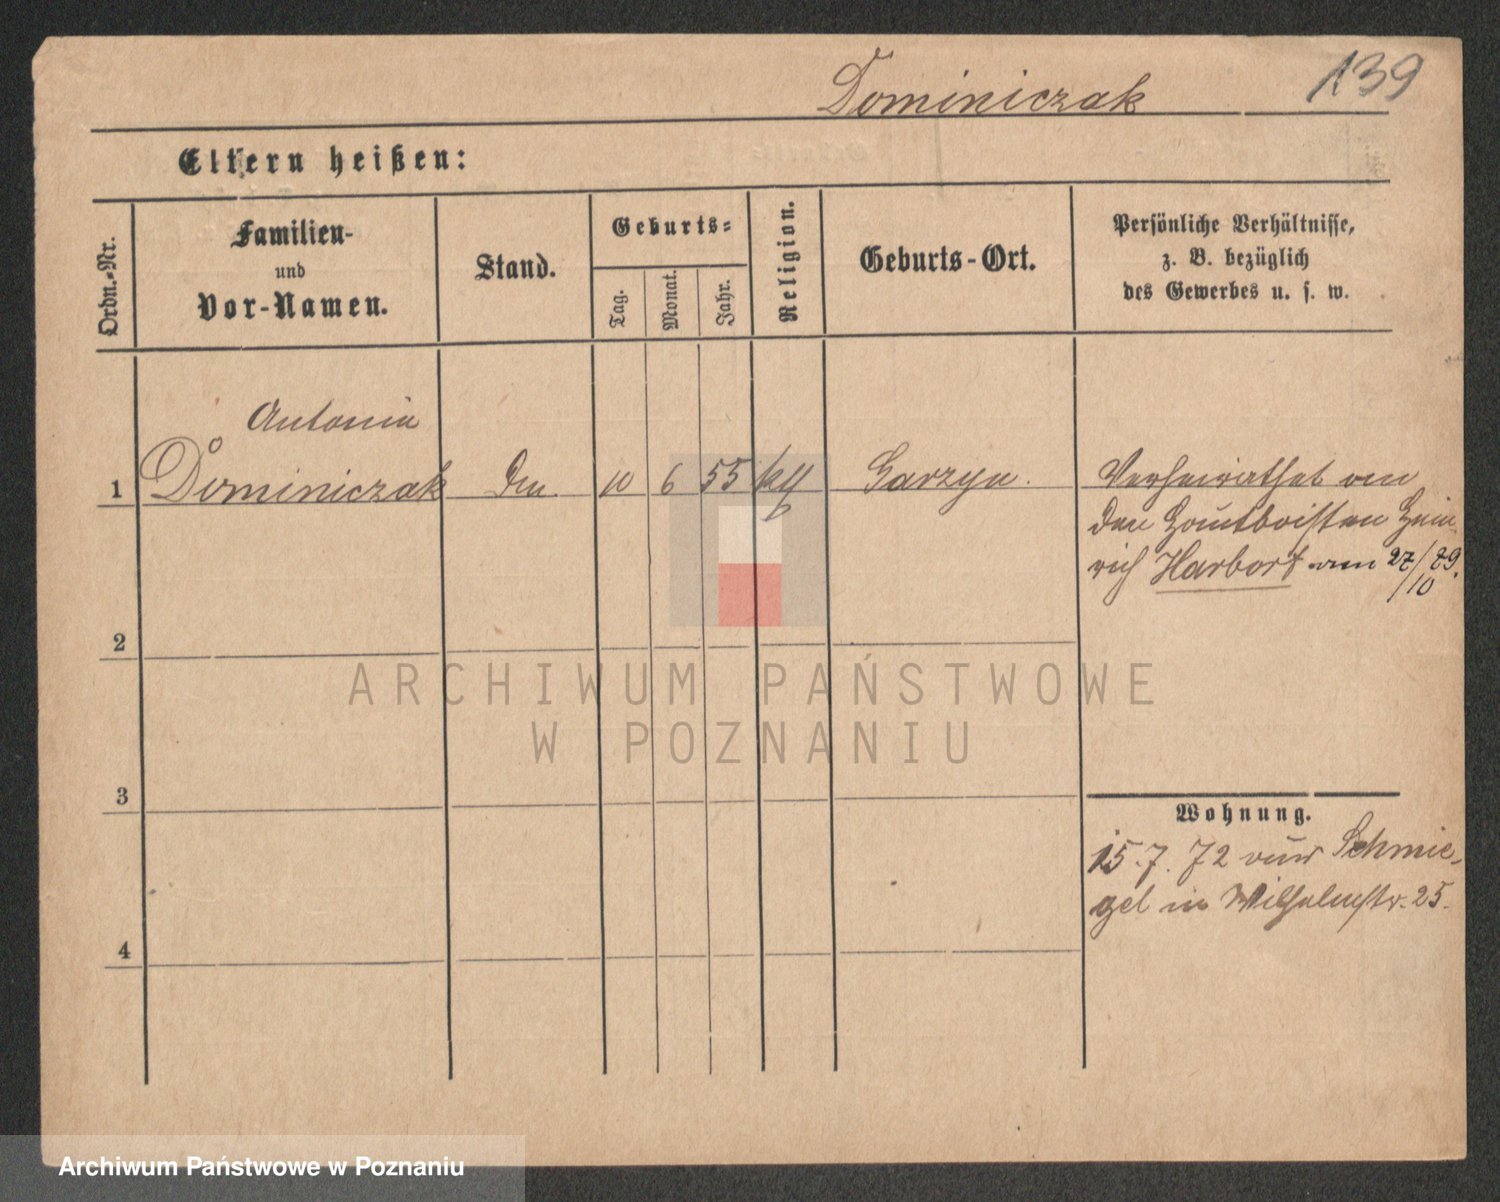 Dominiczak 139
Eltern heißen:
Ordn.-Nr.
Familien-
und
Vor-Namen.
Stand.
Geburts-
Tag.
Monat.
Jahr.
Religion.
Geburts-Ort.
Persönliche Verhältnisse,
z. B. bezüglich
des Gewerbes u. s. w.
Antonia
1 Dominiczak 10 6 55 Garzyn.
Verheirathet an
den Hautboisten Hein-
rich Harbort am 27/10 89.
2
3
4
Wohnung.
15.7.72 aus Schmie-
gel in Wilhelmstr. 25.
ARCHIWUM PAŃSTWOWE
W POZNANIU
Archiwum Państwowe w Poznaniu